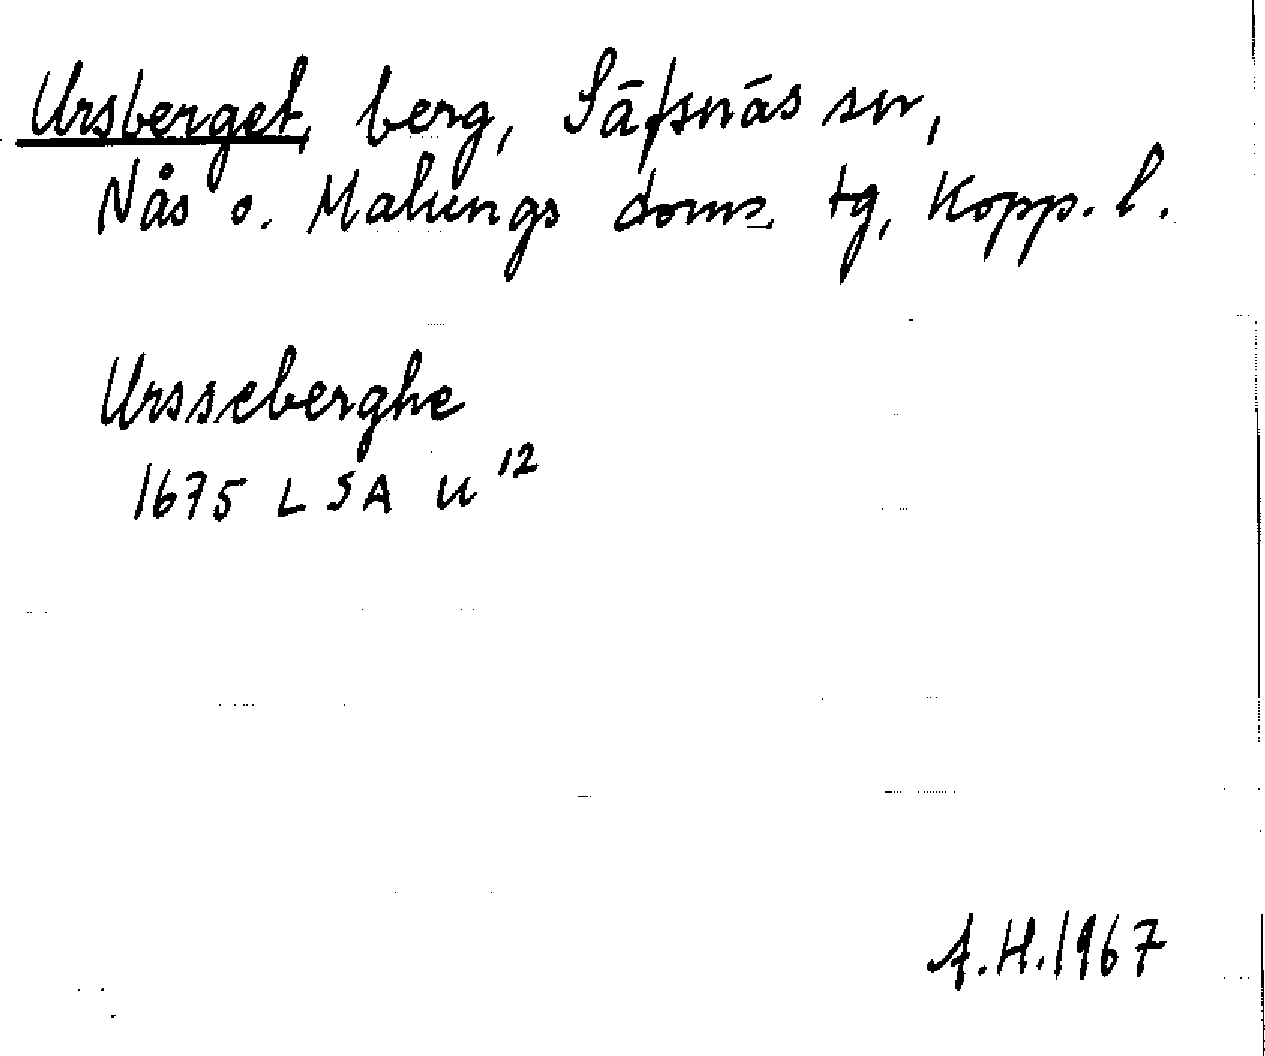 Ursberget, berg, Säfsnäs sn,
Nås o. Malungs doms. tg, Kopp. l.
Ursseberghe
1675 LSA U 12
A.H. 1967